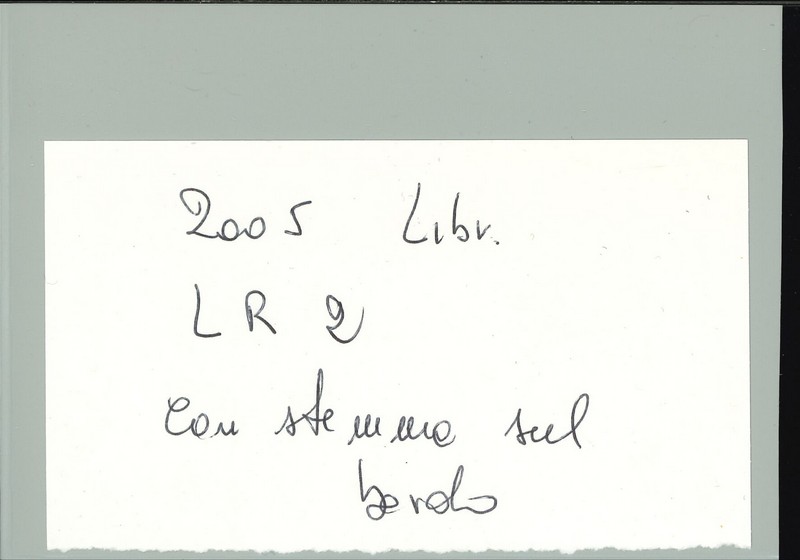 2005 Libr.
LR 2
con stemma sul
bordo